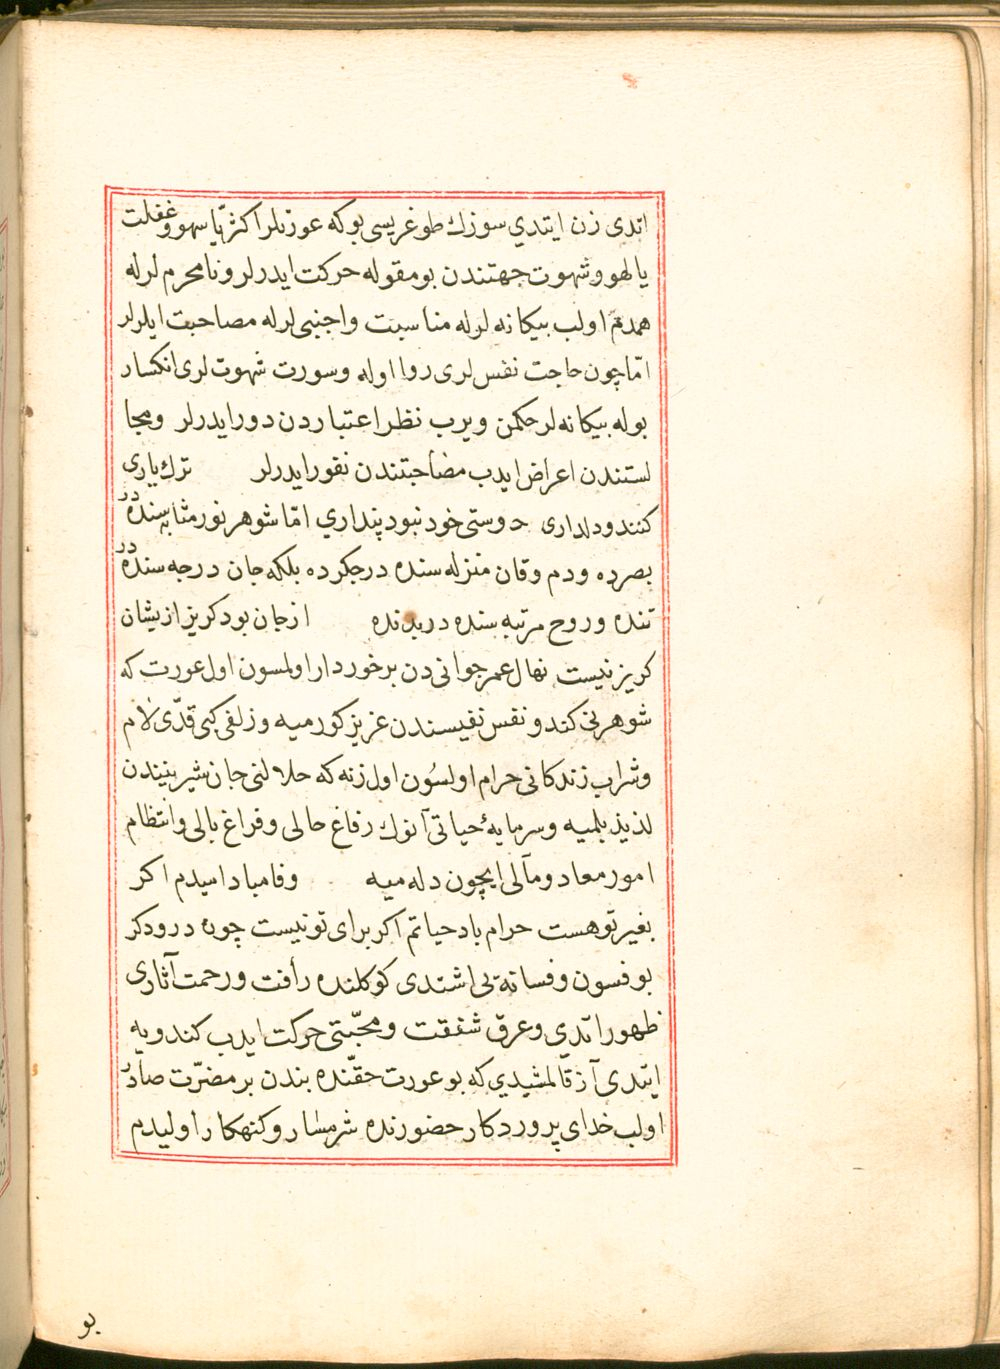 اتدی زن ایتدي سوزك طوغریسی بو که عورتلر اکثر یا سهو و غفلت
یا لهو و شهوت جهتندن بو مقوله حرکت ایدرلر و نا محرم لرله
همدم اولب بیکانه لرله مناسبت و اجنبی لرله مصاحبت ایلرلر
امّا چون حاجت نفس لری روا اوله و سورت شهوت لری انکسار
بوله بیکانه لر حکمن ویرب نظر اعتباردن دور ایدرلر و مجا
لستندن اعراض ایدب مصاحبتندن نفور ایدرلر ترك یاری
کنند و دلداری دوستی خود نبود پنداري امّا شوهر نور مثابه سنده در
بصرده و دم و قان منزله سنده در جکرده بلکه جان درجه سنده در
تنده و روح مرتبه سنده در بدنده از جان بود کریز از یشان
کریز نیست نهال عمر جوانی دن برخوردار اولمسون اول عورت که
شوهرنی کندو نفس نفیسندن عزیز کورمیه و زلفی کبی قدّی لام
و شراب زندکانی حرام اولسون اول زنه که حلالنی جان شیرینیندن
لذیذ بلمیه و سرمایهٔ حیاتی آنوك رفاغ حالی و فراغ بالی و انتظام
امور معاد و مآلی ایچون دله میه وفا مبادا میدم اکر
بغیر تو هست حرام باد حیاتم اکر برای تو نیست چون درودکر
بو فسون و فسانه یی اشتدی کوکلنده رأفت و رحمت آثاری
ظهور اتدی و عرق شفقت و محبّتی حرکت ایدب کندویه
ایتدی آز قالمشیدي که بو عورت حقّنده بندن بر مضرّت صادر
اولب خدای پروردکار حضورنده شرمسار و کنهکار اولیدم
بو